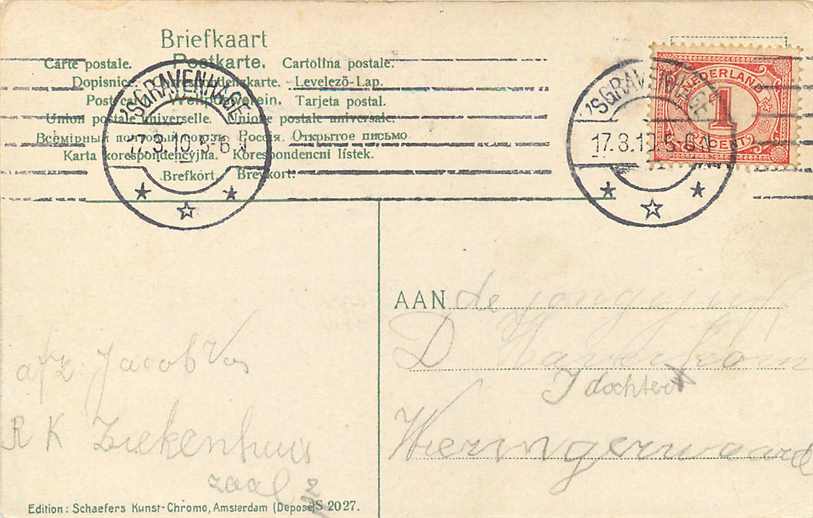 Briefkaart
Carte postale. Postkarte. Cartolina postale.
Dopisnice. Correspondenzkarte. Levelező-Lap.
Postcard. Weltpostverein. Tarjeta postal.
Union postale universelle. Unione postale universale.
Всемірный почтовый союзъ Россія. Открытое письмо
Karta korespondencyjna. Korespondencni lístek.
Brefkort. Brevkort.
'SGRAVENHAGE
17.3.10.5-6 N
'SGRAVENHAGE
17.3.10.5-6 N
NEDERLAND
1
CENT
AAN de jongejuf
D
J dochter
Wieringerwaard
afz. Jacob Vos
R K Ziekenhuis
zaal 2
Edition: Schaefers Kunst-Chromo, Amsterdam (Deposé) S 2027.